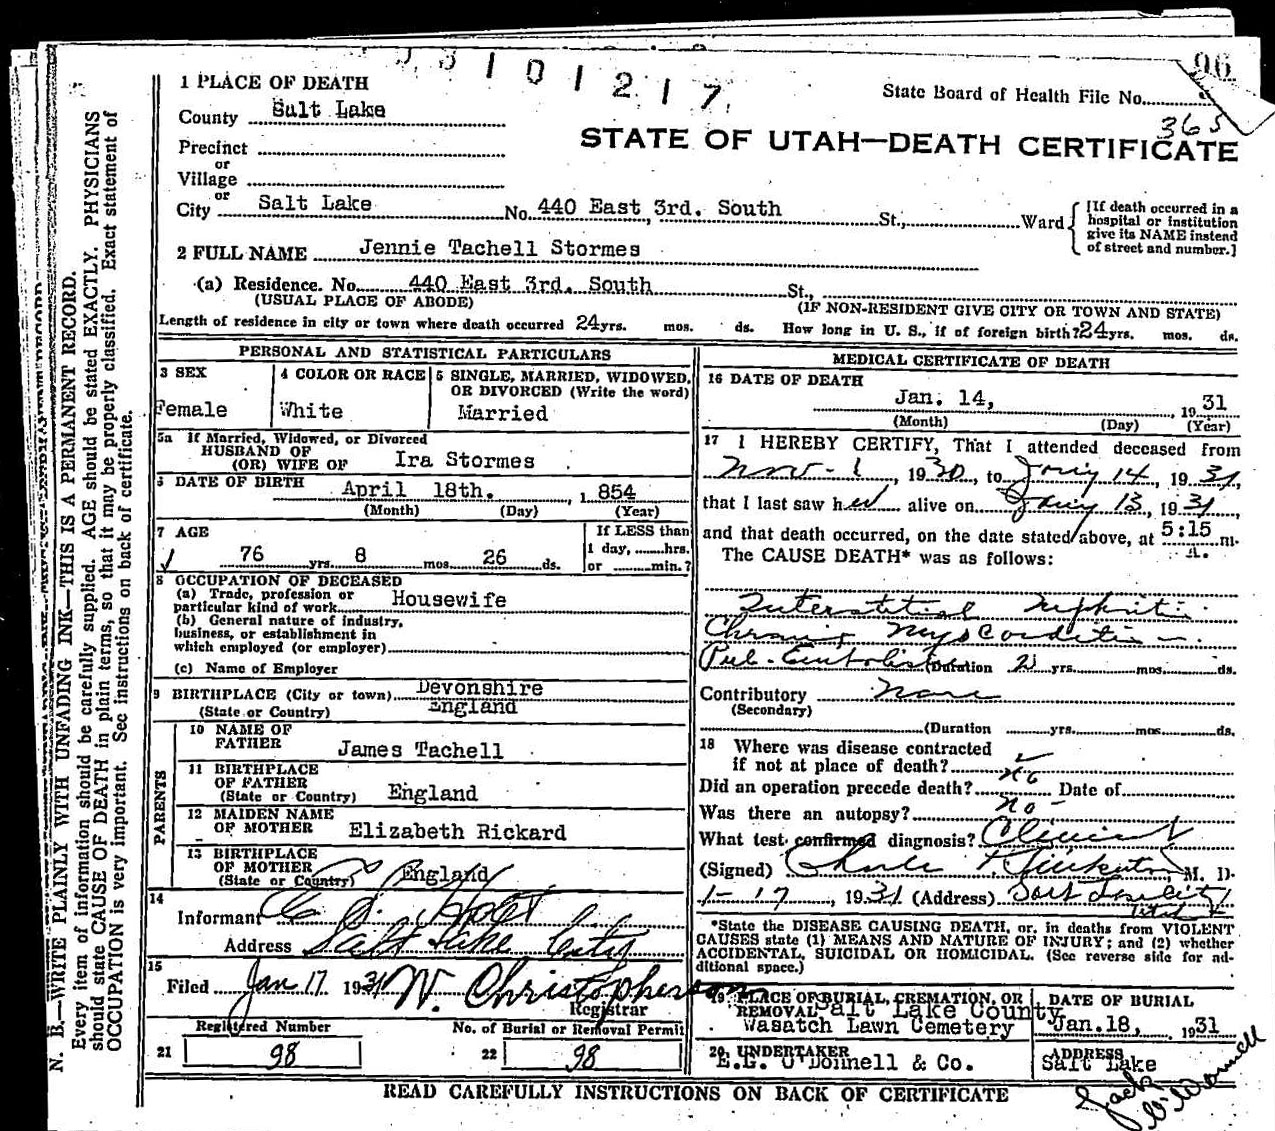 3101217
96
1 PLACE OF DEATH
State Board of Health File No.
365
County Salt Lake
STATE OF UTAH—DEATH CERTIFICATE
Precinct
or
Village
or
City Salt Lake No. 440 East 3rd. South St., Ward
[If death occurred in a
hospital or institution
give its NAME instead
of street and number.]
2 FULL NAME Jennie Tachell Stormes
(a) Residence. No. 440 East 3rd. South St.,
(USUAL PLACE OF ABODE) (IF NON-RESIDENT GIVE CITY OR TOWN AND STATE)
Length of residence in city or town where death occurred 24 yrs. mos. ds. How long in U. S., if of foreign birth? 24 yrs. mos. ds.
PERSONAL AND STATISTICAL PARTICULARS
3 SEX
Female
4 COLOR OR RACE
White
5 SINGLE, MARRIED, WIDOWED,
OR DIVORCED (Write the word)
Married
5a If Married, Widowed, or Divorced
HUSBAND OF
(OR) WIFE OF Ira Stormes
6 DATE OF BIRTH April 18th. , 1 854
(Month) (Day) (Year)
7 AGE
76 yrs. 8 mos. 26 ds.
If LESS than
1 day, hrs.
or min.?
8 OCCUPATION OF DECEASED
(a) Trade, profession or
particular kind of work Housewife
(b) General nature of industry,
business, or establishment in
which employed (or employer)
(c) Name of Employer
9 BIRTHPLACE (City or town) Devonshire
(State or Country) England
PARENTS
10 NAME OF
FATHER James Tachell
11 BIRTHPLACE
OF FATHER
(State or Country) England
12 MAIDEN NAME
OF MOTHER Elizabeth Rickard
13 BIRTHPLACE
OF MOTHER
(State or Country) England
14
Informant
Address Salt Lake City
15
Filed Jan 17 1931 W. Christopherson
Registrar
Registered Number No. of Burial or Removal Permit
21 98 22 98
MEDICAL CERTIFICATE OF DEATH
16 DATE OF DEATH
Jan. 14, , 19 31
(Month) (Day) (Year)
17 I HEREBY CERTIFY, That I attended deceased from
Nov - 1, 1930, to Jany 14, 1931,
that I last saw her alive on Jany 13, 1931,
and that death occurred, on the date stated above, at 5:15 m.
A.
The CAUSE DEATH* was as follows:
Interstitial Nephritis
Chronic Myocarditis
Pul. Embolism (Duration 2 yrs. mos. ds.
Contributory None
(Secondary)
(Duration yrs. mos. ds.
18 Where was disease contracted
if not at place of death?
Did an operation precede death? No Date of
Was there an autopsy? No
What test confirmed diagnosis? Clinical
(Signed) M. D.
1-17, 1931 (Address) Salt Lake City
Utah
*State the DISEASE CAUSING DEATH, or, in deaths from VIOLENT
CAUSES state (1) MEANS AND NATURE OF INJURY; and (2) whether
ACCIDENTAL, SUICIDAL OR HOMICIDAL. (See reverse side for ad-
ditional space.)
19 PLACE OF BURIAL, CREMATION, OR
REMOVAL Salt Lake County
Wasatch Lawn Cemetery
DATE OF BURIAL
Jan.18, 1931
20. UNDERTAKER
E.G. O'Donnell & Co.
ADDRESS
Salt Lake
READ CAREFULLY INSTRUCTIONS ON BACK OF CERTIFICATE
Jack O'Donnell
N. B.—WRITE PLAINLY WITH UNFADING INK—THIS IS A PERMANENT RECORD.
Every item of information should be carefully supplied. AGE should be stated EXACTLY. PHYSICIANS
should state CAUSE OF DEATH in plain terms, so that it may be properly classified. Exact statement of
OCCUPATION is very important. See instructions on back of certificate.